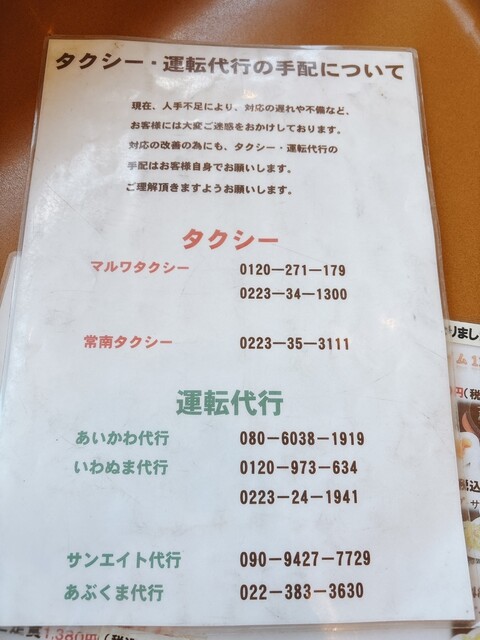 タクシー・運転代行の手配について
現在、人手不足により、対応の遅れや不備など、
お客様には大変ご迷惑をおかけしております。
対応の改善の為にも、タクシー・運転代行の
手配はお客様自身でお願いします。
ご理解頂きますようお願いします。
タクシー
マルワタクシー 0120-271-179
0223-34-1300
常南タクシー 0223-35-3111
運転代行
あいかわ代行 080-6038-1919
いわぬま代行 0120-973-634
0223-24-1941
サンエイト代行 090-9427-7729
あぶくま代行 022-383-3630
りまし
円(税
税込
サ
1,380円(税込